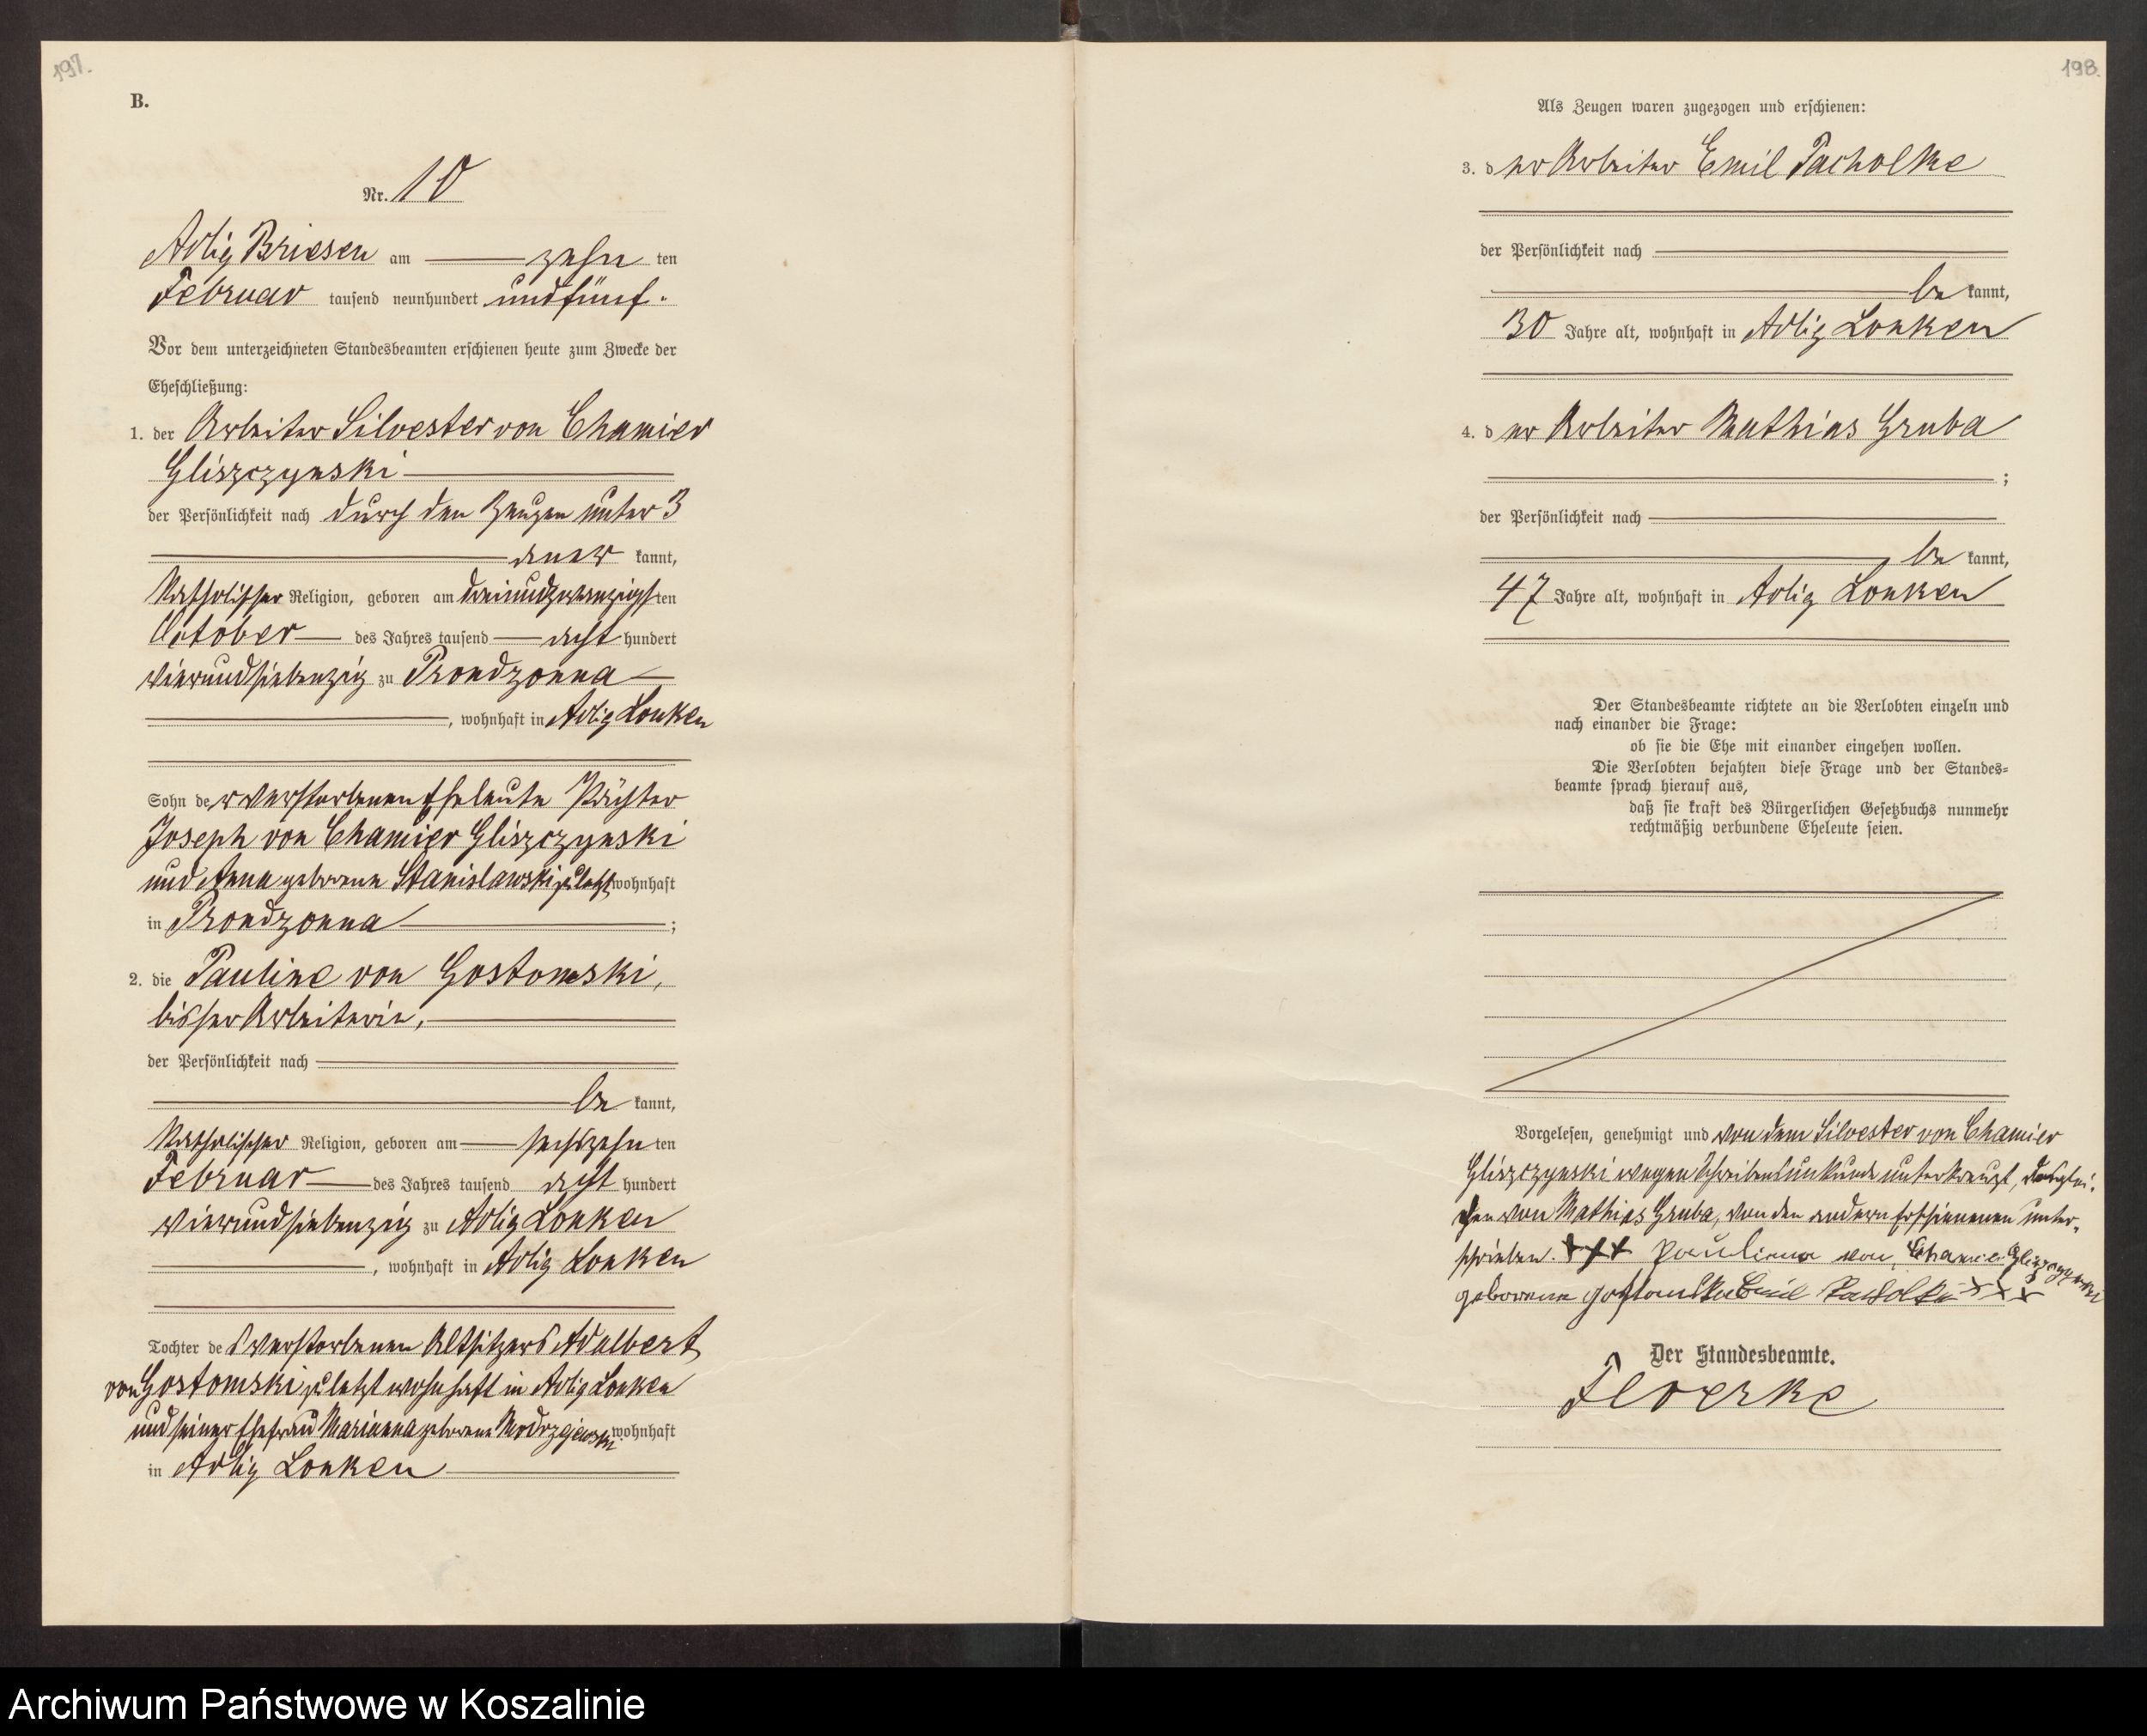 197.
B.
Nr. 10
Adlig Briesen am zehn ten
Februar tausend neunhundert und fünf.
Vor dem unterzeichneten Standesbeamten erschienen heute zum Zwecke der
Eheschließung:
1. der Arbeiter Silvester von Chamier
Gliszczynski
der Persönlichkeit nach durch den Zeugen unter 3
aner kannt,
katholischer Religion, geboren am dreiundzwanzigsten
October des Jahres tausend acht hundert
vierundsiebenzig zu Prondzonna
, wohnhaft in Adlig Lonken
Sohn der verstorbenen Eheleute Pächter
Joseph von Chamier Gliszczynski
und Anna geborene Stanislawski zuletzt wohnhaft
in Prondzonna ;
2. die Pauline von Gostomski,
bisher Arbeiterin,
der Persönlichkeit nach
be kannt,
katholischer Religion, geboren am sechszehn ten
Februar des Jahres tausend acht hundert
vierundsiebenzig zu Adlig Lonken
, wohnhaft in Adlig Lonken
Tochter des verstorbenen Altsitzers Adalbert
von Gostomski zuletzt wohnhaft in Adlig Lonken
und seiner Ehefrau Marianna geborene Modrzejewski wohnhaft
in Adlig Lonken
198.
Als Zeugen waren zugezogen und erschienen:
3. der Arbeiter Emil Pacholke
der Persönlichkeit nach
be kannt,
30 Jahre alt, wohnhaft in Adlig Lonken
4. der Arbeiter Mathias Gruba
;
der Persönlichkeit nach
be kannt,
47 Jahre alt, wohnhaft in Adlig Lonken
Der Standesbeamte richtete an die Verlobten einzeln und
nach einander die Frage:
ob sie die Ehe mit einander eingehen wollen.
Die Verlobten bejahten diese Frage und der Standes-
beamte sprach hierauf aus,
daß sie kraft des Bürgerlichen Gesetzbuchs nunmehr
rechtmäßig verbundene Eheleute seien.
Vorgelesen, genehmigt und von dem Silvester von Chamier
Gliszczynski wegen Schreibensunkunde unterkreuzt, desglei-
chen von Mathias Gruba, von den andern Erschienenen unter-
schrieben. +++ Paulina von Chamier Gliszczynski
geborene Gostomska Emil Pacholke +++
Der Standesbeamte.
Floerke
Archiwum Państwowe w Koszalinie